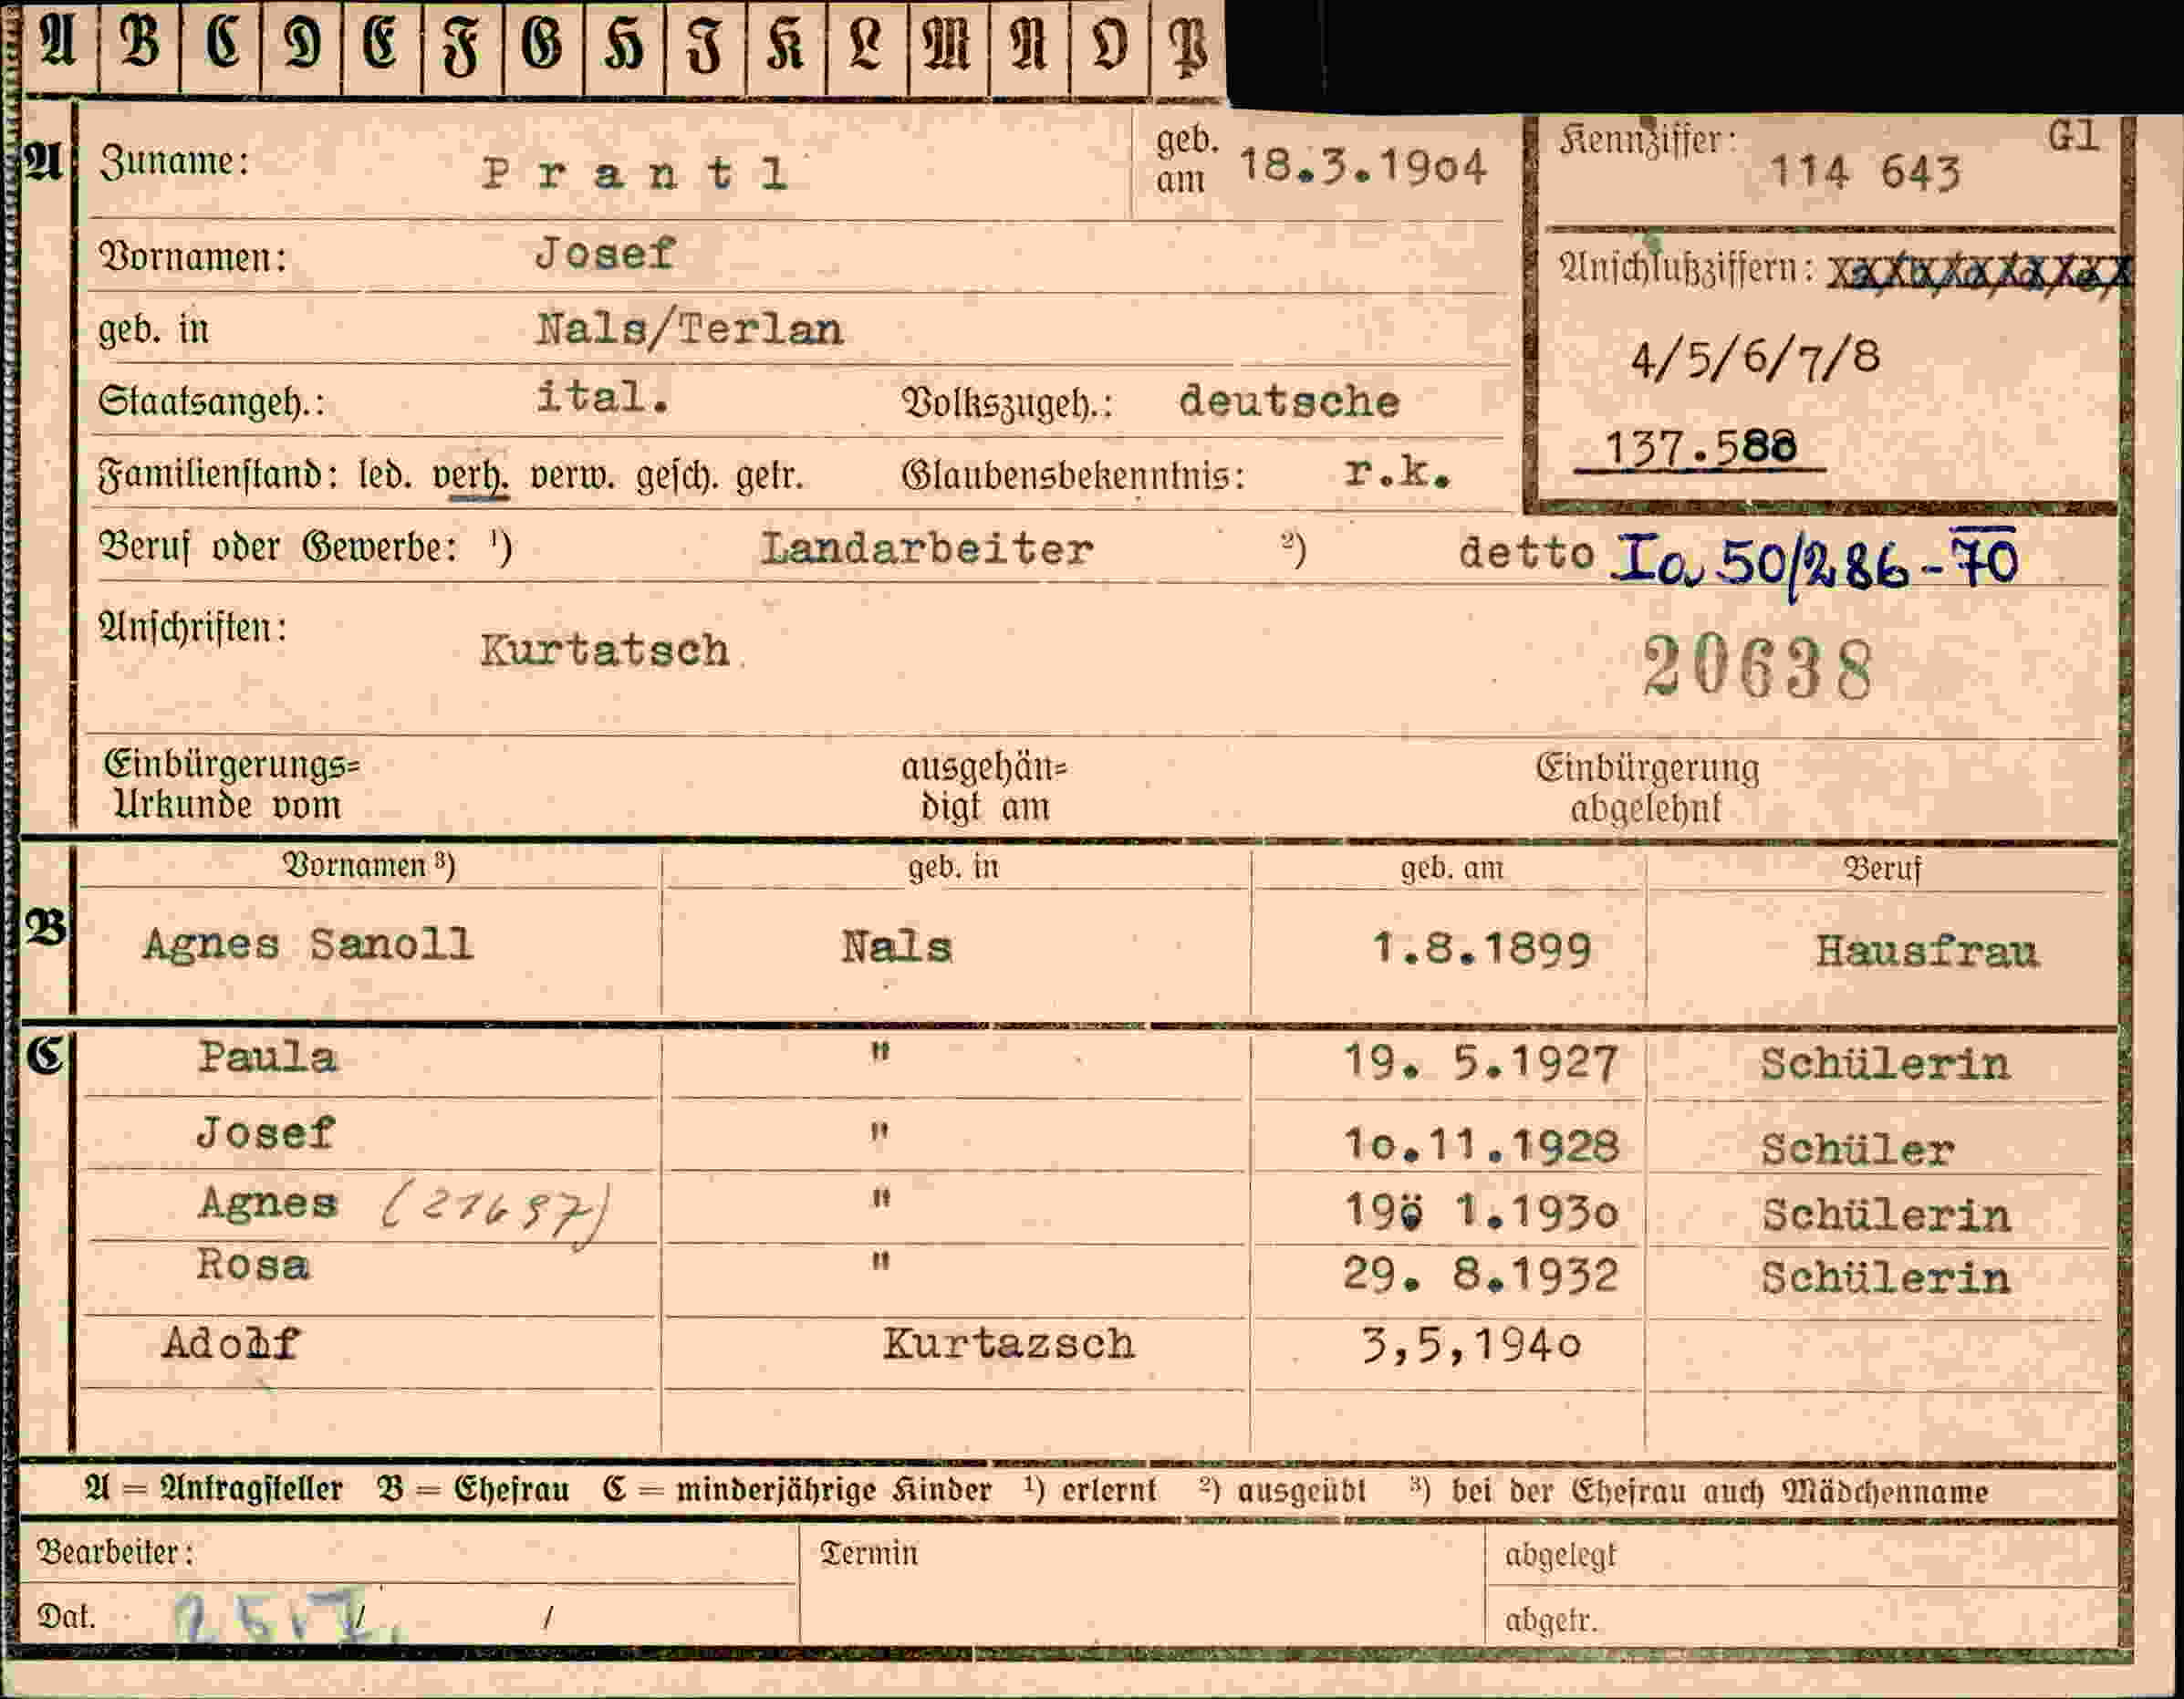 A B C D E F G H I K L M N O P
A Zuname: Prantl geb. am 18.3.1904 Kennziffer: 114 643 Gl
Vornamen: Josef Anschlußziffern:
geb. in Nals/Terlan 4/5/6/7/8
Staatsangeh.: ital. Volkszugeh.: deutsche
137.588
Familienstand: led. verh. verw. gesch. getr. Glaubensbekenntnis: r.k.
Beruf oder Gewerbe: ¹) Landarbeiter ²) detto Ia 50/286-70
Anschriften: Kurtatsch 20638
Einbürgerungs= ausgehän= Einbürgerung
Urkunde vom digt am abgelehnt
Vornamen ³) geb. in geb. am Beruf
B Agnes Sanoll Nals 1.8.1899 Hausfrau
C Paula " 19. 5.1927 Schülerin
Josef " 10.11.1928 Schüler
Agnes (21697) " 19ö 1.1930 Schülerin
Rosa " 29. 8.1932 Schülerin
Adolf Kurtazsch 3,5,1940
A = Antragsteller B = Ehefrau C = minderjährige Kinder ¹) erlernt ²) ausgeübt ³) bei der Ehefrau auch Mädchenname
Bearbeiter: Termin abgelegt
Dat. / / abgetr.